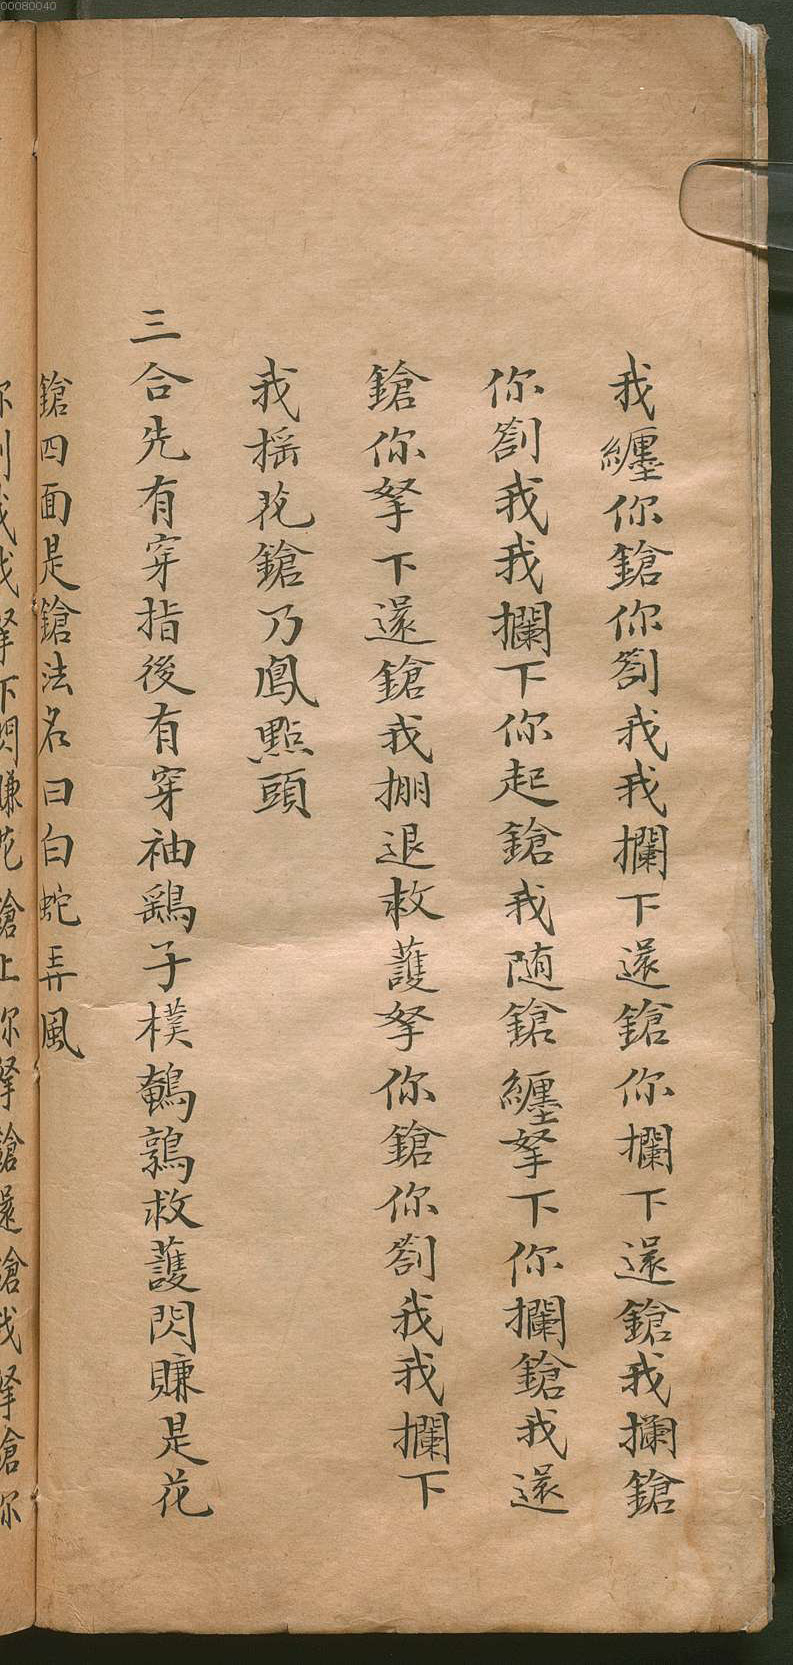 00080040
我纏你鎗你劄我我攔下還鎗你攔下還鎗我攔鎗
你劄我我攔下你起鎗我随鎗纏拏下你攔鎗我還
鎗你拏下還鎗我掤退救護拏你鎗你劄我我攔下
我揺花鎗乃鳳點頭
三合先有穿指後有穿袖鷂子樸鵪鶉救護閃賺是花
鎗四面是鎗法名曰白蛇弄風